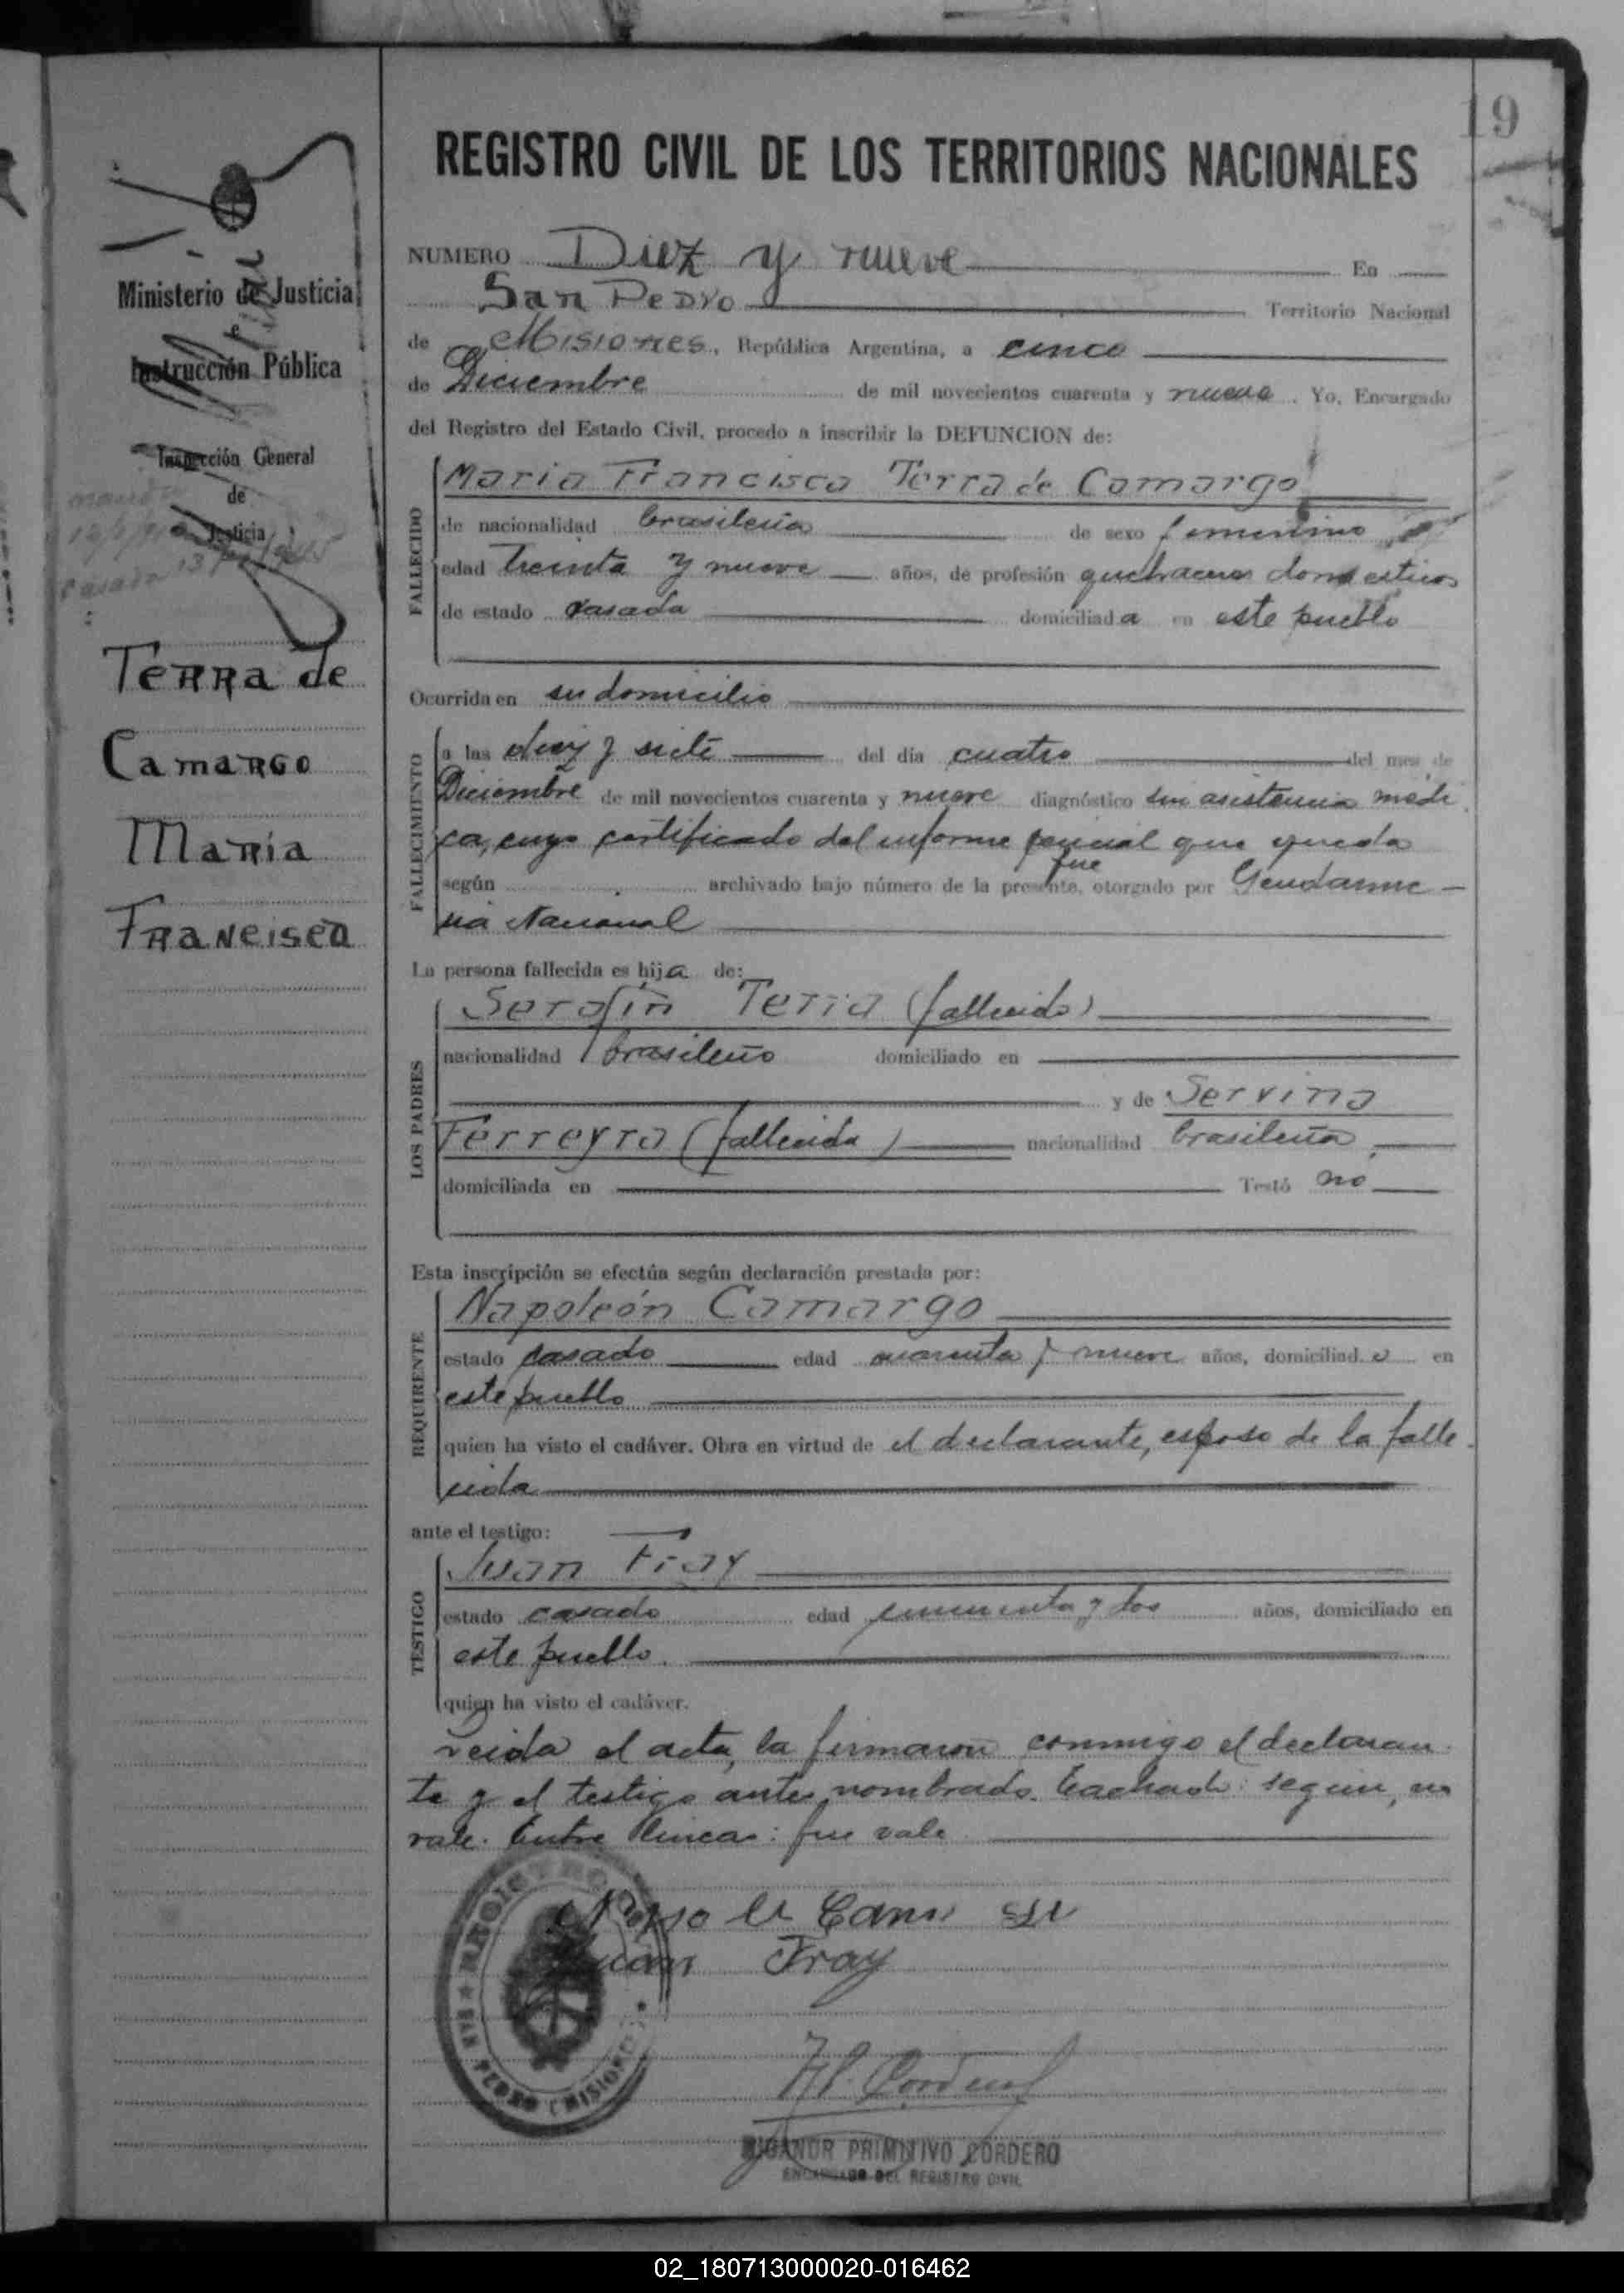 19
REGISTRO CIVIL DE LOS TERRITORIOS NACIONALES
Ministerio de Justicia
e
Instrucción Pública
Inspección General
de
Justicia
casada
Terra de
Camargo
Maria
Francisca
NUMERO Diez y nueve En
San Pedro Territorio Nacional
de Misiones, República Argentina, a cinco
de Diciembre de mil novecientos cuarenta y nueve. Yo, Encargado
del Registro del Estado Civil, procedo a inscribir la DEFUNCION de:
FALLECIDO
Maria Francisca Terra de Camargo
de nacionalidad brasileña de sexo femenino
edad treinta y nueve años, de profesión quehaceres domesticos
de estado casada domiciliada en este pueblo
Ocurrida en su domicilio
FALLECIMIENTO
a las diez y siete del día cuatro del mes de
Diciembre de mil novecientos cuarenta y nueve diagnóstico sin asistencia medi
ca, cuyo certificado del informe pericial que queda
fue
según archivado bajo número de la presente, otorgado por Gendarme-
ria Nacional
La persona fallecida es hija de:
LOS PADRES
Serafin Terra (fallecido)
nacionalidad brasileño domiciliado en
y de Servina
Ferreyra (fallecida) nacionalidad brasileña,
domiciliada en Testó no
Esta inscripción se efectúa según declaración prestada por:
REQUIRENTE
Napoleón Camargo
estado casado edad cuarenta y nueve años, domiciliado en
este pueblo
quien ha visto el cadáver. Obra en virtud de el declarante, esposo de la falle
cida
ante el testigo:
TESTIGO
Juan Fray
estado casado edad cincuenta y dos años, domiciliado en
este pueblo.
quien ha visto el cadáver.
Leida el acta, la firmaron conmigo el declaran
te y el testigo antes nombrado. Tachado: según, no
vale. Entre lineas: fue vale
Juan Fray
REGISTRO
SAN PEDRO (MISIONES)
NICANOR PRIMITIVO CORDERO
ENCARGADO DEL REGISTRO CIVIL
02_180713000020-016462